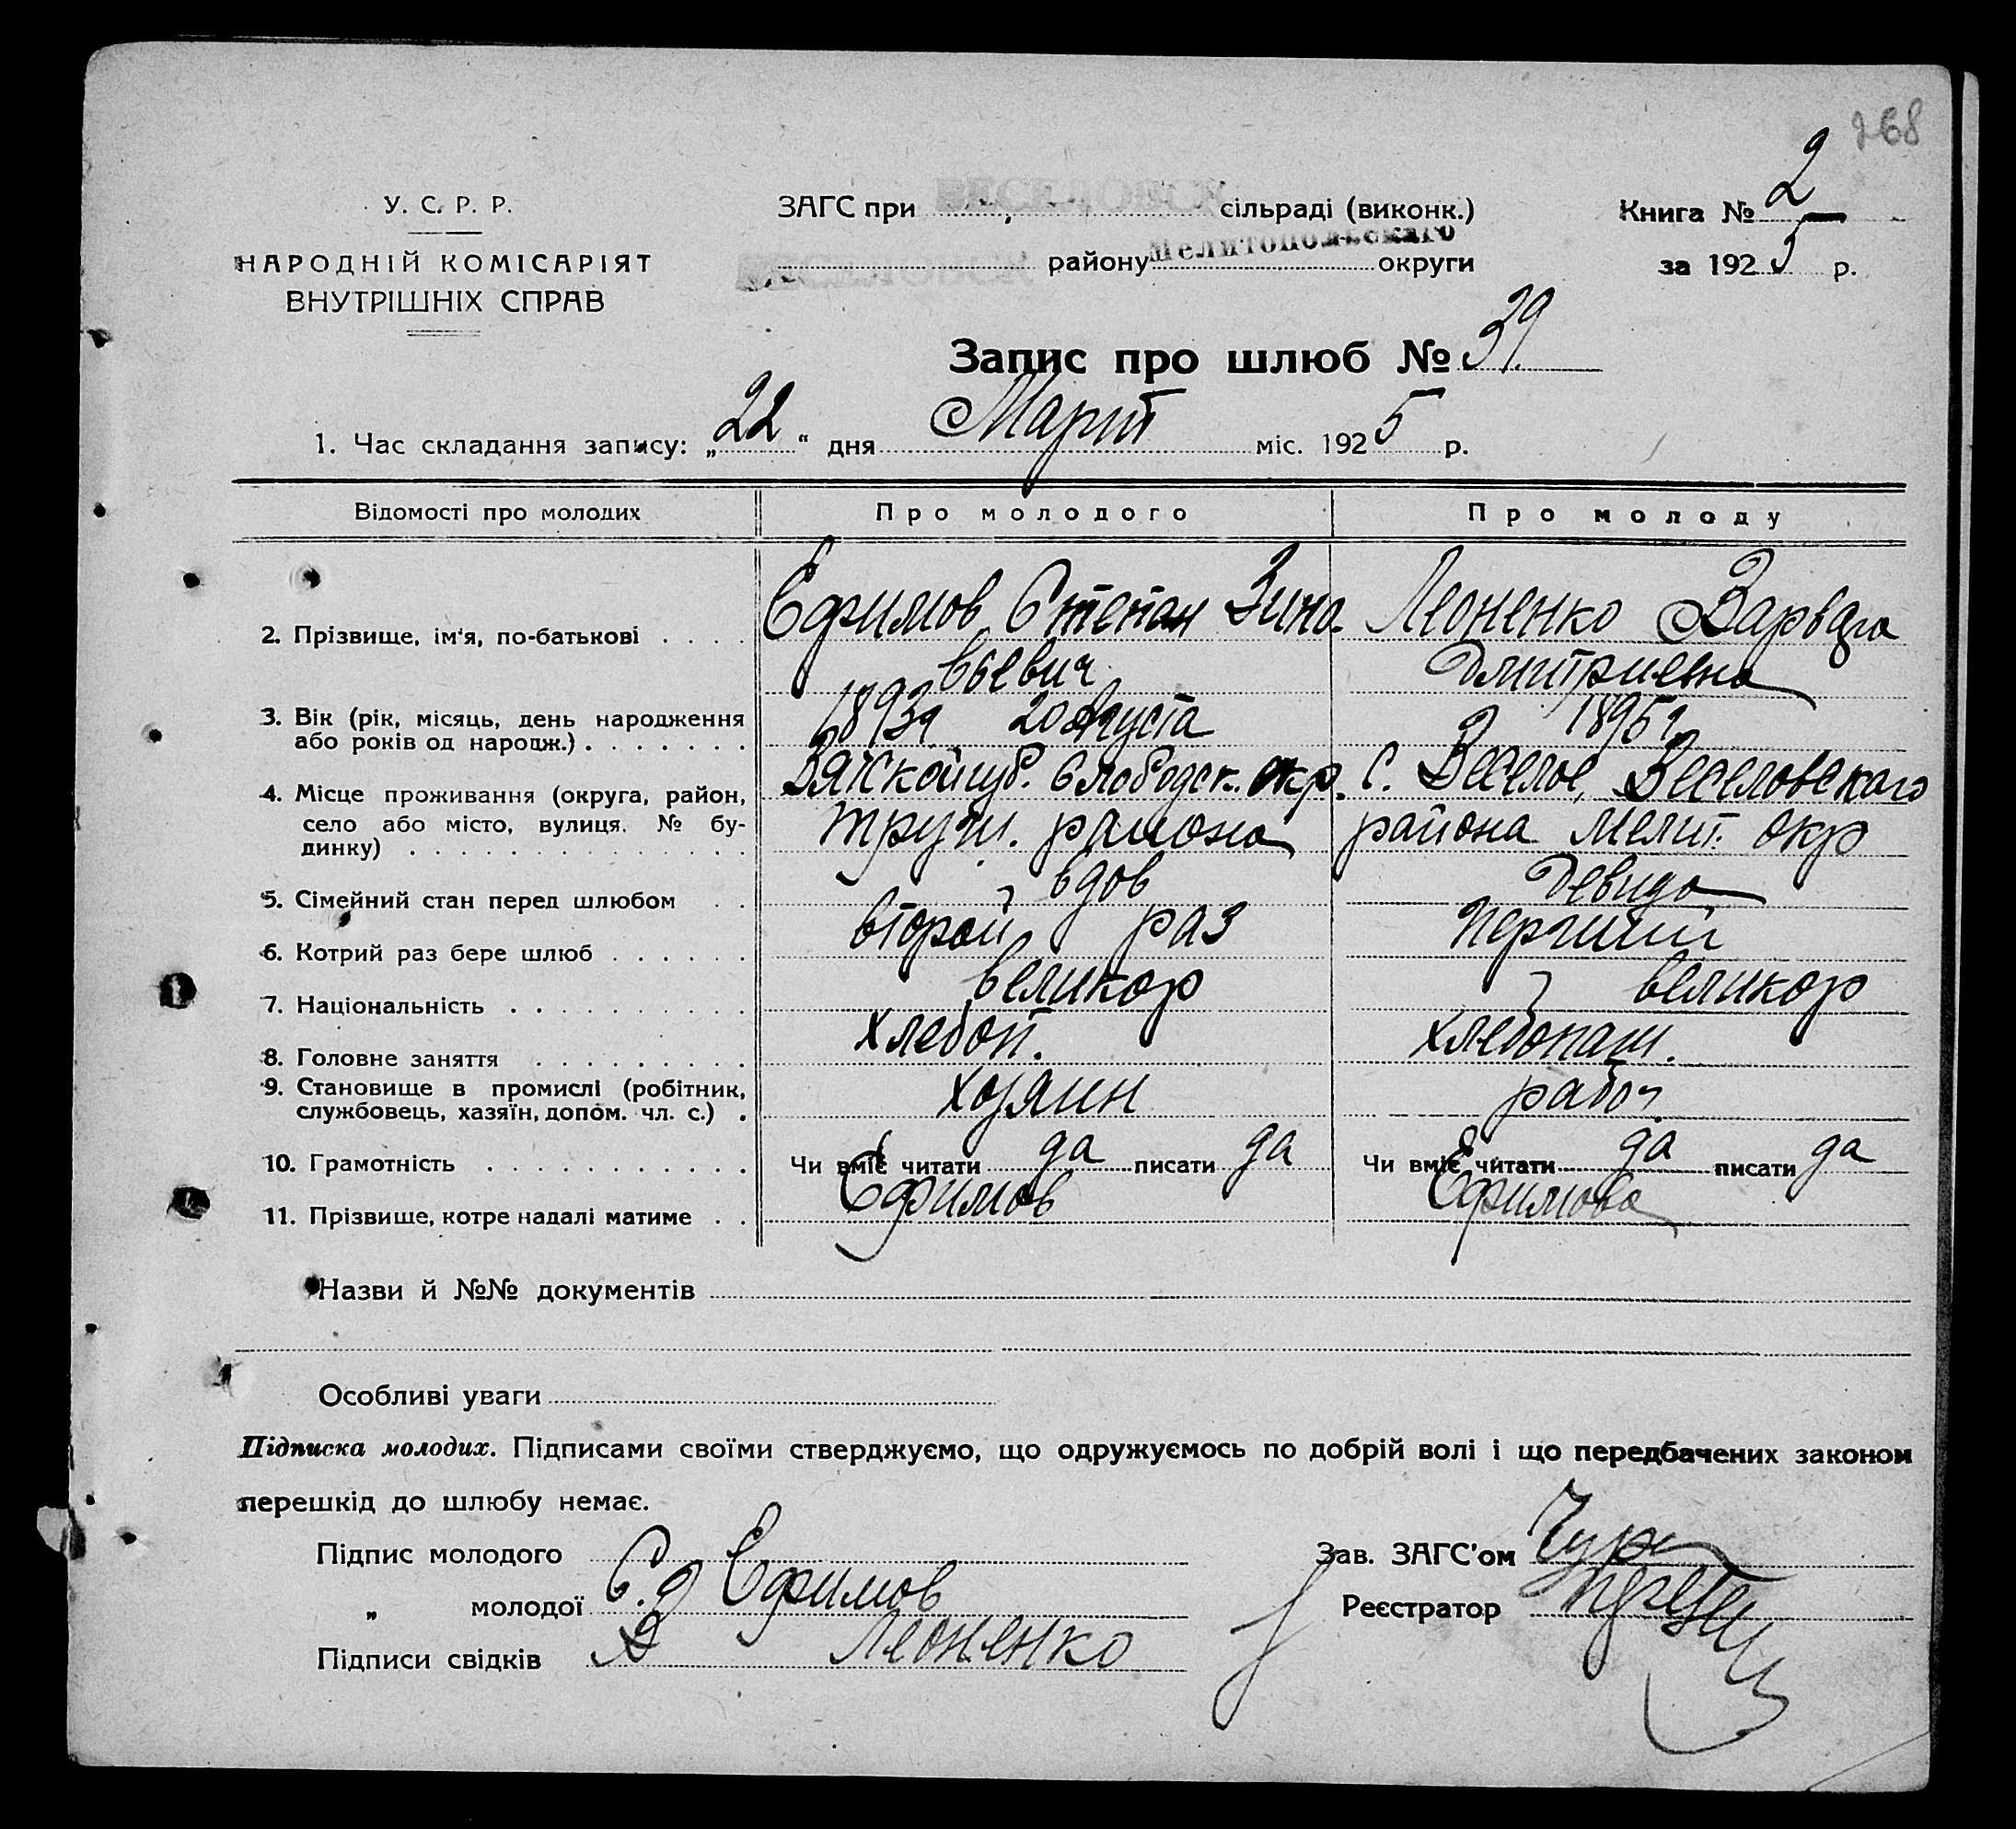 268
У. С. Р. Р.
НАРОДНІЙ КОМІСАРІЯТ
ВНУТРІШНІХ СПРАВ
ЗАГС при сільраді (виконк.)
району Мелитопольскаго округи
Книга № 2
за 1925 р.
Запис про шлюб № 39.
1. Час складання запису: „22“ дня Март міс. 1925 р.
Відомості про молодих Про молодого Про молоду
2. Прізвище, ім'я, по-батькові . . . . Ефимов Степан Зино- Леоненко Варвара
вьевич Дмитриевна
3. Вік (рік, місяць, день народження
або років од народж.) . . . . . . . 1893 г 20 августа 1895 г
4. Місце проживання (округа, район,
село або місто, вулиця, № бу-
динку) . . . . . . . . . . . . . . .
Вятской губ. Слободск. окр. с. Веселое, Веселовского
района района Мелит. окр
5. Сімейний стан перед шлюбом . . вдов Девица
6. Котрий раз бере шлюб . . . . . . второй раз первый
7. Національність . . . . . . . . . . великор великор
8. Головне заняття . . . . . . . . . хлебоп. хлебопаш.
9. Становище в промислі (робітник,
службовець, хазяїн, допом. чл. с.) . хозяин работ.
10. Грамотність . . . . . . . . . . . Чи вміє читати да писати да Чи вміє читати да писати да
11. Прізвище, котре надалі матиме . . Ефимов Ефимова
Назви й №№ документів
Особливі уваги
Підписка молодих. Підписами своїми стверджуємо, що одружуємось по добрій волі і що передбачених законом
перешкід до шлюбу немає.
Підпис молодого
„ молодої Ефимов
Підписи свідків Леоненко
Зав. ЗАГС'ом
Реєстратор